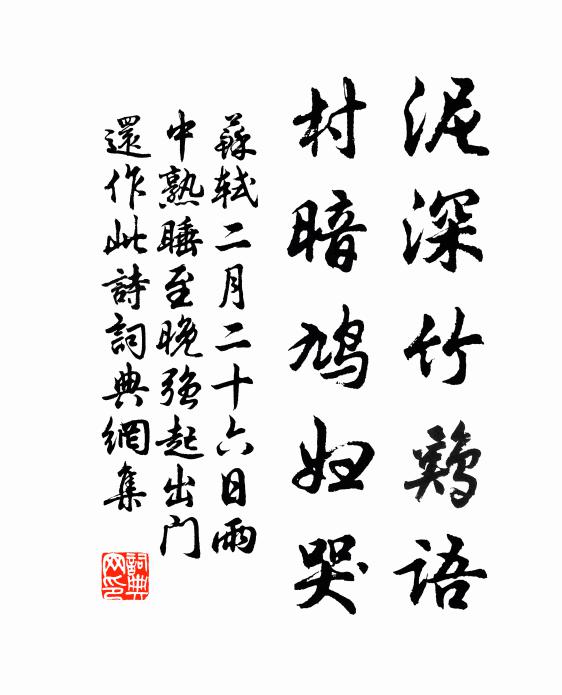 泥深竹鷄语
村暗鳩妇哭
蘇軾二月二十六日雨
中熟睡至晚强起出门
還作此詩詞典網集
詞典
网印